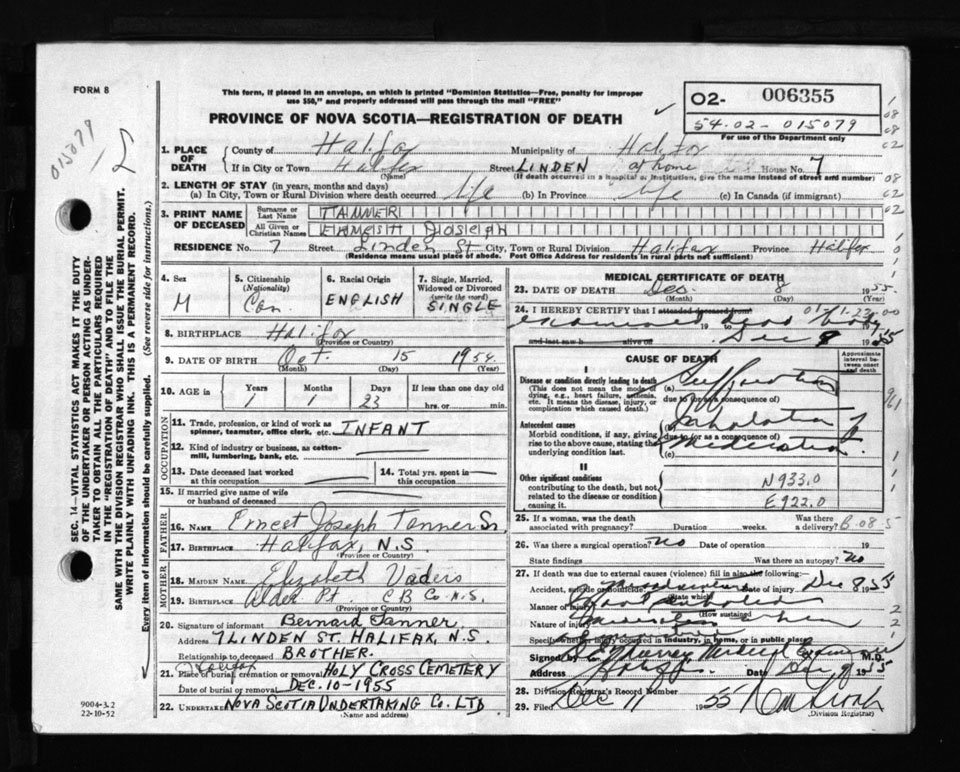 FORM 8
This form, if placed in an envelope, on which is printed "Dominion Statistics—Free, penalty for improper
use $50," and properly addressed will pass through the mail "FREE"
PROVINCE OF NOVA SCOTIA—REGISTRATION OF DEATH
02- 006355
54-02-015079
For use of the Department only
015079
1. PLACE OF DEATH County of Halifax Municipality of Halifax
If in City or Town Halifax Street LINDEN at home House No. 7
(Name) (If death occurred in a hospital or institution, give the name instead of street and number)
2. LENGTH OF STAY (in years, months and days)
(a) In City, Town or Rural Division where death occurred life (b) In Province life (c) In Canada (if immigrant)
3. PRINT NAME OF DECEASED Surname or Last Name TANNER
All Given or Christian Names ERNEST JOSEPH
RESIDENCE No. 7 Street Linden St City, Town or Rural Division Halifax Province Halifax
(Residence means usual place of abode. Post Office Address for residents in rural parts not sufficient)
4. Sex M
5. Citizenship (Nationality) Can.
6. Racial Origin ENGLISH
7. Single, Married, Widowed or Divorced (write the word) SINGLE
8. BIRTHPLACE Halifax
(Province or Country)
9. DATE OF BIRTH Oct. 15 1954
(Month) (Day) (Year)
10. AGE in Years Months Days If less than one day old
1 1 23 hrs. or min.
OCCUPATION
11. Trade, profession, or kind of work as
spinner, teamster, office clerk, etc. INFANT
12. Kind of industry or business, as cotton-
mill, lumbering, bank, etc.
13. Date deceased last worked
at this occupation
14. Total yrs. spent in
this occupation
15. If married give name of wife
or husband of deceased
FATHER
16. NAME Ernest Joseph Tanner Sr
17. BIRTHPLACE Halifax, N.S.
(Province or Country)
MOTHER
18. MAIDEN NAME Elizabeth Vaders
19. BIRTHPLACE Alder Pt. C B Co. N.S.
(Province or Country)
20. Signature of informant Bernard Tanner
Address 7 LINDEN ST. HALIFAX, N.S.
Relationship to deceased BROTHER.
21. Place of burial, cremation or removal Halifax HOLY CROSS CEMETERY
Date of burial or removal DEC. 10-1955
22. UNDERTAKER NOVA SCOTIA UNDERTAKING CO. LTD
(Name and address)
MEDICAL CERTIFICATE OF DEATH
23. DATE OF DEATH Dec. 8 1955
(Month) (Day) (Year)
24. I HEREBY CERTIFY that I attended deceased from
examined body 19
and last saw h alive on Dec 8 1955
CAUSE OF DEATH
Approximate interval between onset and death
I
Disease or condition directly leading to death
(This does not mean the mode of dying, e.g., heart failure, asthenia, etc. It means the disease, injury, or complication which caused death.)
(a) Suffocation
due to (or as a consequence of)
Antecedent causes
Morbid conditions, if any, giving rise to the above cause, stating the underlying condition last.
(b) Inhalation of
due to (or as a consequence of)
(c)
II
Other significant conditions
contributing to the death, but not related to the disease or condition causing it.
N933.0
E922.0
25. If a woman, was the death
associated with pregnancy? Duration weeks. Was there a delivery?
B-08-5
26. Was there a surgical operation? no Date of operation 19
State findings Was there an autopsy? no
27. If death was due to external causes (violence) fill in also the following:
Accident, suicide or homicide? Date of injury Dec 8 1955
(State which)
Manner of injury
(How sustained)
Nature of injury
Specify whether injury occurred in industry, in home, or in public place
Signed by Murray Medical Examiner M.D.
Address Halifax Date Dec 9 1955
28. Division Registrar's Record Number
29. Filed Dec 11 1955
(Division Registrar)
SEC. 14—VITAL STATISTICS ACT MAKES IT THE DUTY
OF THE UNDERTAKER OR PERSON ACTING AS UNDER-
TAKER TO OBTAIN ALL THE PARTICULARS REQUIRED
IN THE "REGISTRATION OF DEATH" AND TO FILE THE
SAME WITH THE DIVISION REGISTRAR WHO SHALL ISSUE THE BURIAL PERMIT.
WRITE PLAINLY WITH UNFADING INK. THIS IS A PERMANENT RECORD.
Every item of information should be carefully supplied. (See reverse side for instructions.)
9004-3.2
22-10-52